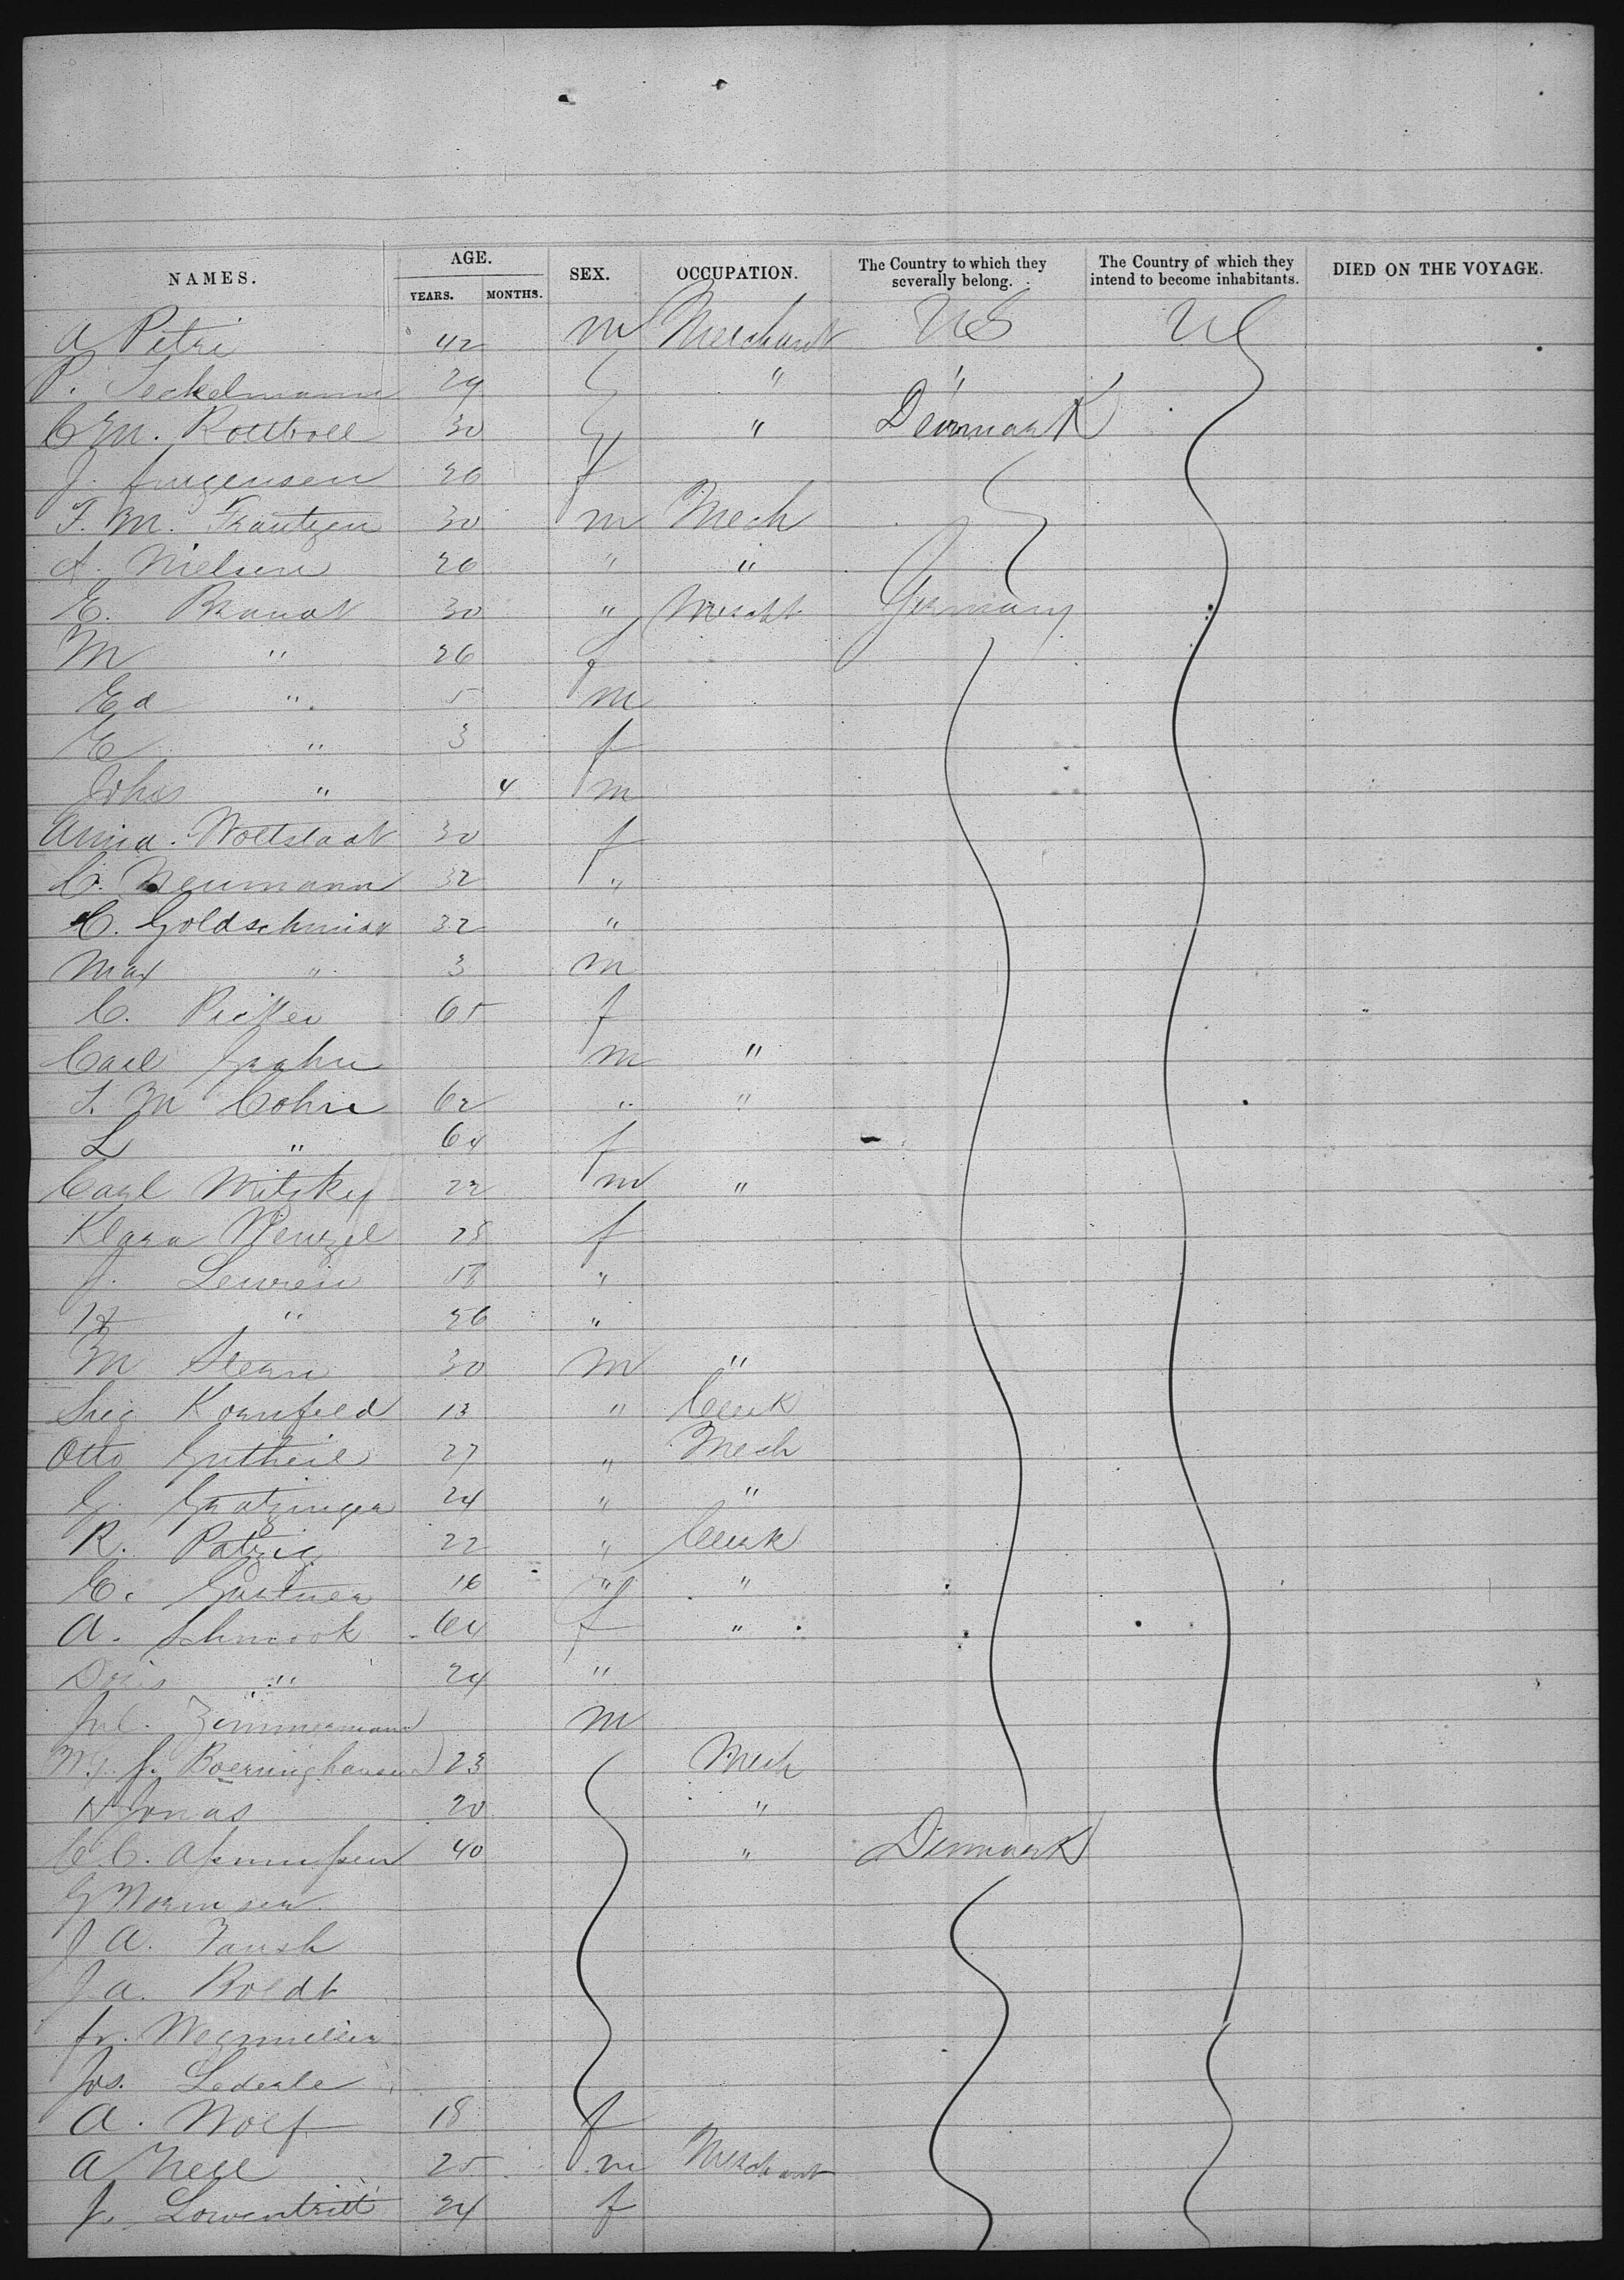 NAMES. AGE. SEX. OCCUPATION. The Country to which they severally belong. The Country of which they intend to become inhabitants. DIED ON THE VOYAGE.
YEARS. MONTHS.
A Petri 42 m Merchant US US
P. Seckelmann 29 " "
C M. Rottboll 30 " Denmark
J. Jurgensen 26 f
T. M. Frantzen 30 m Mech
A. Nielsen 26 " "
E. Brandt 30 " Mercht Germany
M " 26 f
Ed " 5 m
E " 3 f
Johs " 4 m
Anna Woltstadt 30 f
C. Neumann 32 "
C. Goldschmidt 32 "
Max " 3 m
C. 65 f
Carl Grahn m "
S. M Cohn 62 " "
L " 64 f
Carl Milsky 22 m "
Klara Wenzel 28 f
J. Lewein 58 "
H " 26 "
M Stern 30 m "
Sig Kornfeld 13 " Clerk
Otto Gutheil 27 " Mech
G. Gratzinger 24 " "
R. Patzig 22 " Clerk
E. Gartner 16 " "
A. Schmook 64 f "
Doris " 24 "
Jul. Zimmermann m
W. J. Boerninghausen 23 Mech
N Jonas 20 "
C. C. 40 " Denmark
G Wormser
J A. Fansh
J A. Boldt
Fr. Wegmuller
Jos. Lederle
A. Wolf 18 f
A Nell 25 m Merchant
J. Lowentritt 24 f